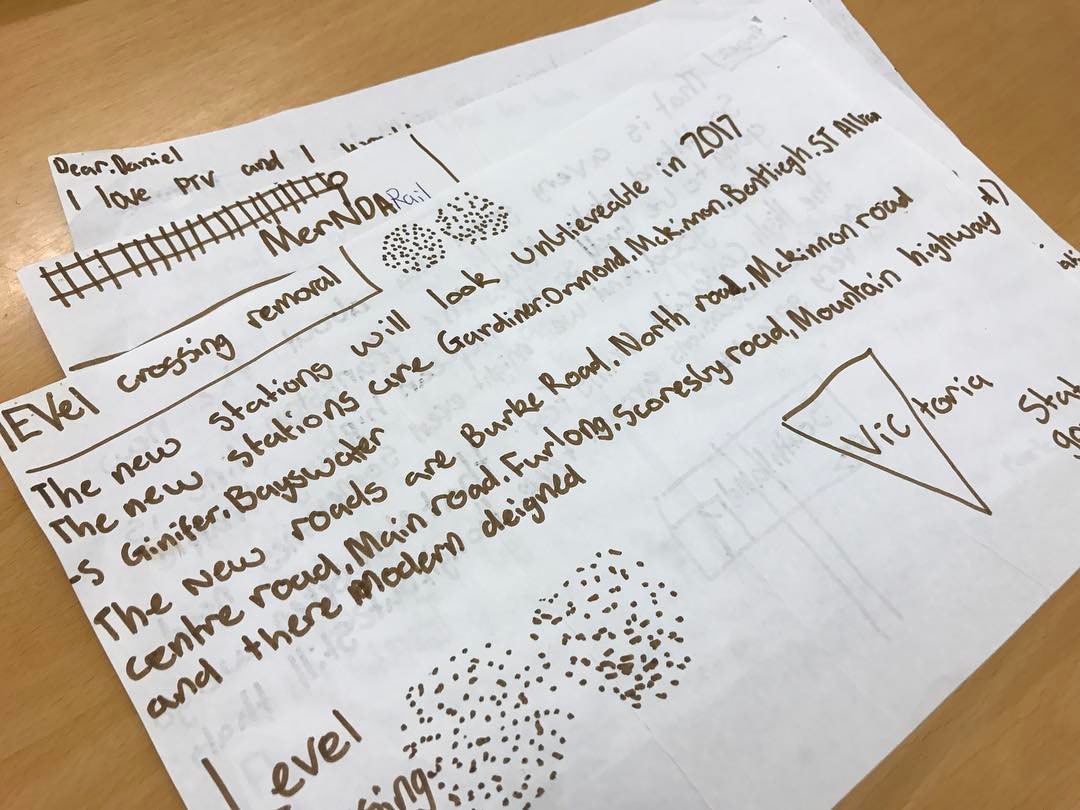 Dear.Daniel
I love PTV and I
MerNDA Rail
lEVel crossing removal
The new stations will look unblieveable in 2017
The new stations are Gardiner.Ormond.Mckinnon.Bentliegh.ST Alban
-s Ginifer.Bayswater
The new roads are Burke Road, North road, Mckinnon road
centre road, Main road. Furlong. Scoresby road, Mountain highway
and there Modern deigned
Vic toria
Stat
go
level